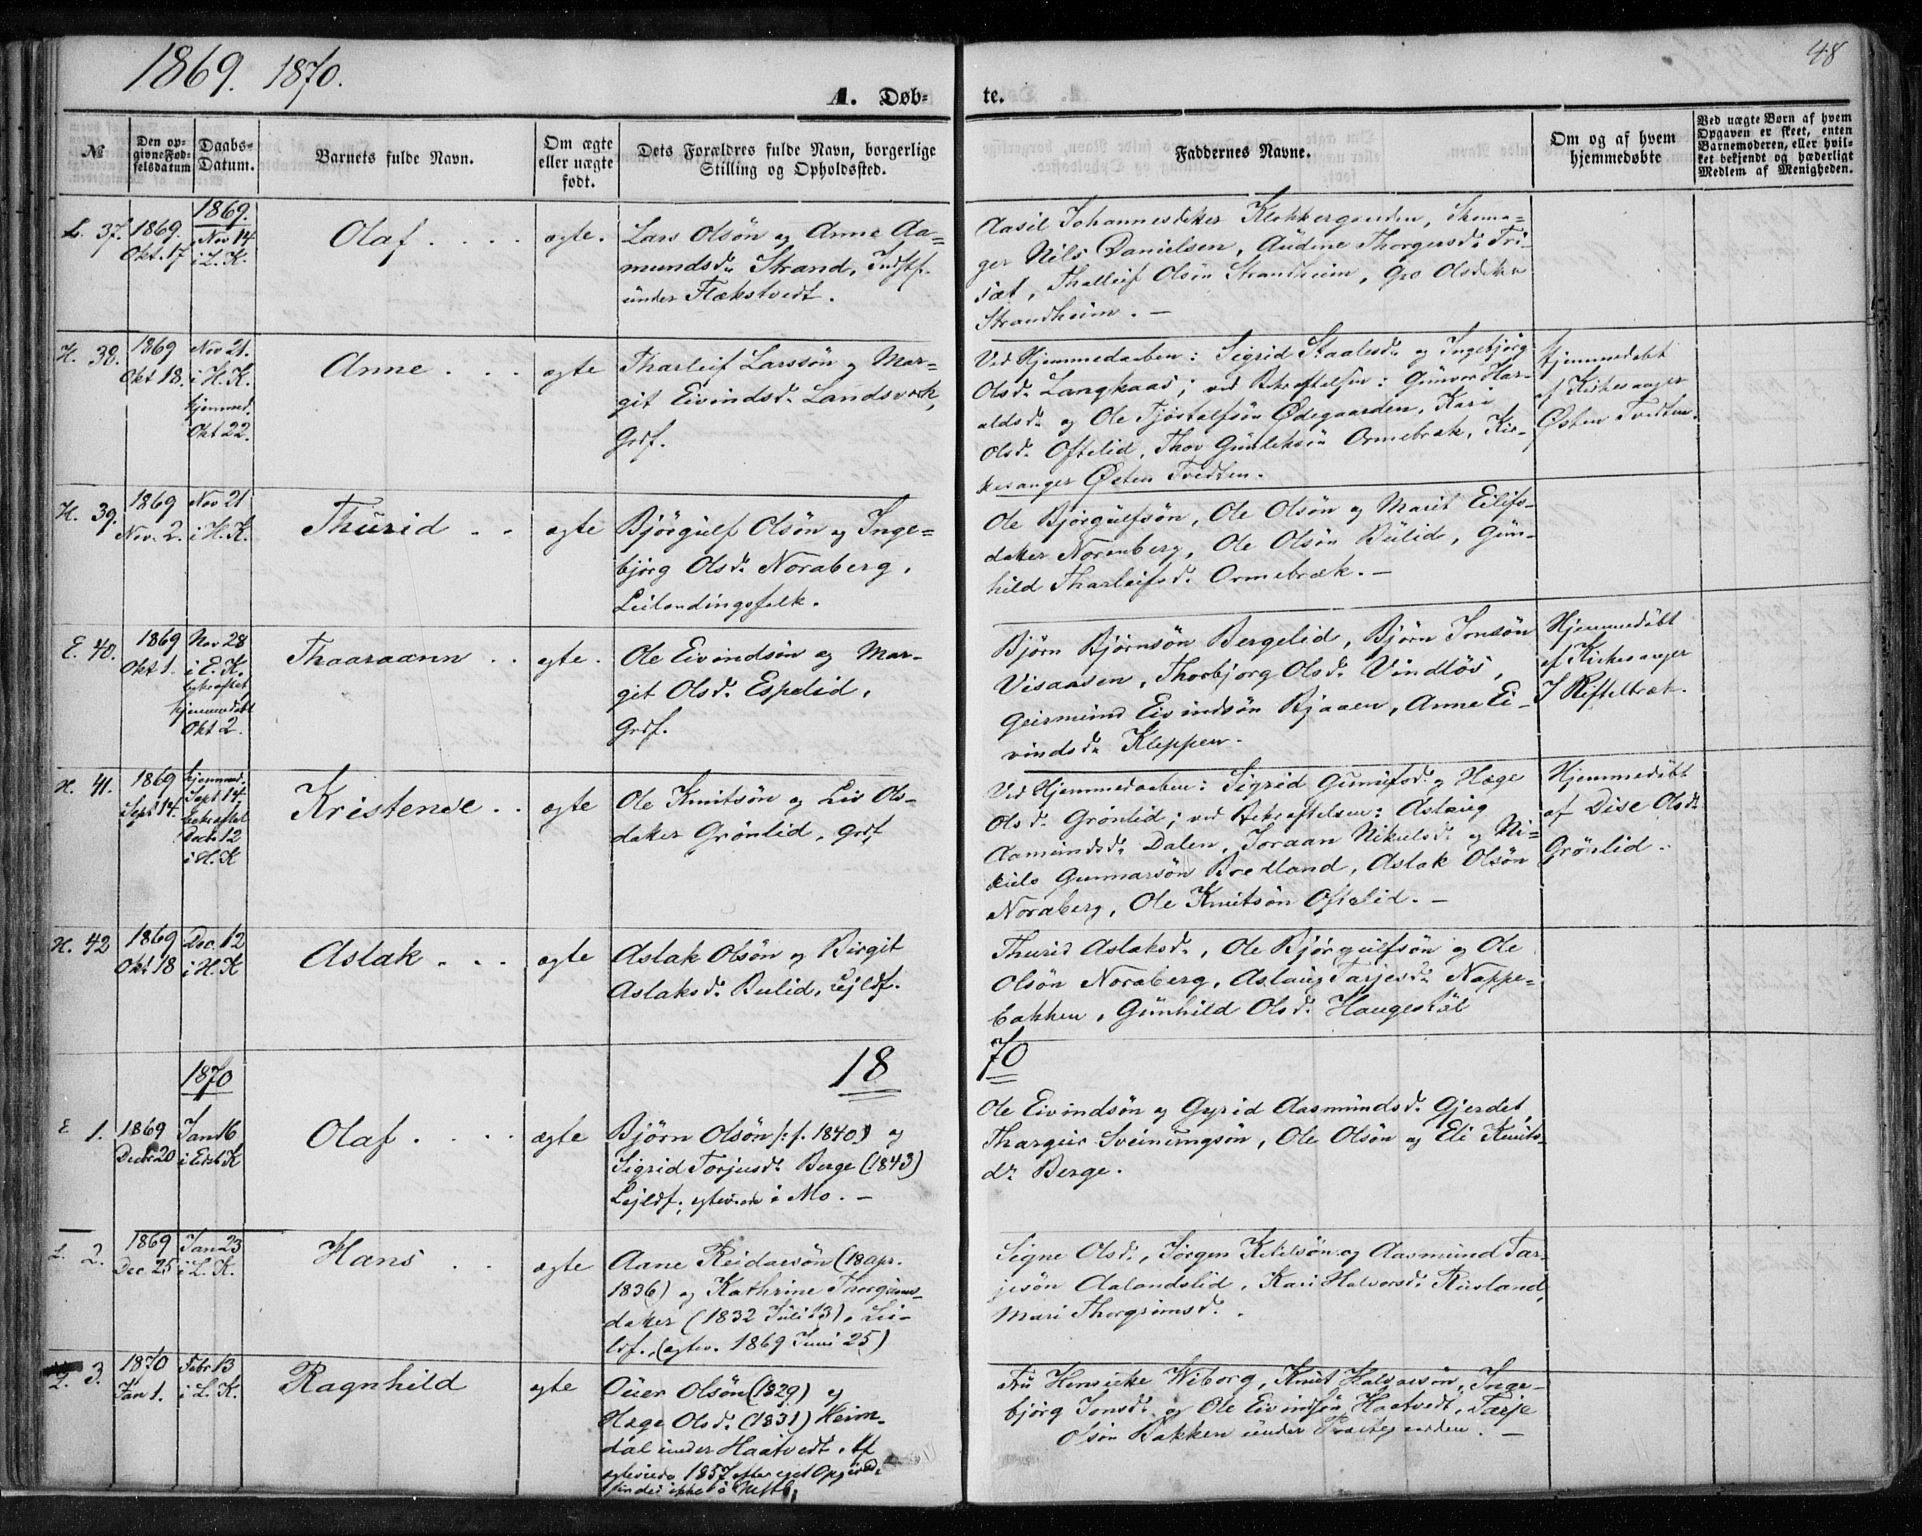 1869. 1870.
48
A. Døb-
te.
№
Den op-
givne Fød-
selsdatum
Daabs-
Datum.
Barnets fulde Navn.
Om ægte
eller uægte
født.
Dets Forældres fulde Navn, borgerlige
Stilling og Opholdssted.
Faddernes Navne.
Om og af hvem
hjemmedøbte
Ved uægte Børn af hvem
Opgaven er skeet, enten
Barnemoderen, eller hvil-
ket bekjendt og hæderligt
Medlem af Menigheden.
L. 37.
1869.
Okt. 17
1869.
Nov 14
i L. K.
Olaf
ægte.
Lars Olsön og Anne Aa=
mundsdr Strand, Indstf.
under Flækstvedt.
Aasil Johannesdater Klokkergaarden, Skoma=
ger Nils Danielsen, Audine Thorgersdr Tri-
sæt, Thalleif Olsön Strandheim, Gro Olsdater
Strandheim. —
H. 38.
1869
Okt 18.
Nov 21.
i H. K.
hjemmed.
Okt 22.
Anne
ægte
Tharleif Larssön og Mar-
git Eivindsdr Landsverk,
Grdf.
Ved Hjemmedaaben: Sigrid Staalesdr og Ingebjörg
Olsdr Langkaas; ved Bekræftelsen: Gunvor Har-
aldsdr og Ole Tjöstolfsön Ødegaarden, Kari
Olsdr Oftelid, Thor Gunleksön Ormebræk, Kir-
kesanger Østen Tvedten.
Hjemmedöbt
af Kirkesanger
Østen Tvedten.
H. 39.
1869
Nov. 2.
Nov 21
i H. K.
Thurid
ægte
Björgulf Olsön og Inge=
björg Olsdr Noraberg,
Leilændingsfolk.
Ole Björgulfsön, Ole Olsön og Marit Eilifs-
dater Noraberg, Ole Olsön Bulid, Gun-
hild Tharleifsdr Ormebræk. —
E. 40.
1869
Okt 1.
Nov 28
i E. K.
bekræftet
hjemmedöbt
Okt 2.
Thaaraann
ægte.
Ole Eivindsön og Mar-
git Olsdr Espelid,
Grdf.
Björn Björnsön Bergelid, Björn Jonsön
Visaasen, Thorbjorg Olsdr Vindlös,
Geirmund Eivindsön Bjaaen, Anne Ei-
vindsdr Kleppen.
Hjemmedöbt
af Kirkesanger
J Reftelbræk.
H. 41.
1869
Sept 14.
hjemmed.
Sept 14
bekræftet
Decbr 12
i H. K
Kristense
ægte
Ole Knutsön og Liv Ols-
dater Grönlid, grdf
Ved Hjemmedaaben: Sigrid Gunulfsdr og Hæge
Olsdr Grönlid; ved Bekræftelsen: Aslaug
Aamundsdr Dalen, Joraan Nikulsdr og Ni=
kuls Gunnarsön Bredland, Aslak Olsön
Noraberg, Ole Knutsön Oftelid. —
Hjemmedöbt
af Dise Olsdr
Grönlid.
H. 42
1869
Okt 18
Dec. 12
i H. K
Aslak
ægte
Aslak Olsön og Birgit
Aslaksdr Bulid, Lejldf.
Thurid Aslaksdr, Ole Björgulfsön og Ole
Olsön Noraberg, Aslaug Tarjesdr Nappe-
bakken, Gunhild Olsdr Haugestöl
1870
18
70
E 1.
1869
Decbr 20
Jan 16
i Eksb K
Olaf
ægte
Björn Olsön (: f. 1840) og
Sigrid Torjusdr Berge (1843)
Lejldf. ægteviede i Mo. —
Ole Eivindsön og Gyrid Aasmundsdr Gjerdet,
Thargeir Sveinungsön, Ole Olsön og Eli Knuts-
dr Berge.
L. 2.
1869
Dec 25
Jan 23
i L. K.
Hans
ægte
Aane Reidarsön (18 apr.
1836) og Kathrine Thorgrims-
dater (1832 Juli 13), Lei-
ldf., (ægtev. 1869 Juni 25)
Signe Olsdr, Jörgen Ketilsön og Aasmund Tar-
jesön Aalandslid, Kari Halvorsdr Rusland,
Mari Thorgrimsdr.
L. 3.
1870
Jan 1.
Febr 13
i L. K.
Ragnhild
ægte
Olsön (1829) og
Hæge Olsdr (1831) Heim-
dal under Haatvedt,
ægteviede 1857 efter eget Opgivende
findes ikke i
Fru Henricke Wiborg, Knut Halvorsön, Inge-
björg Jonsdr og Ole Eivindsön Haatvedt, Tarje
Olsön Bakken under Præstegaarden. —